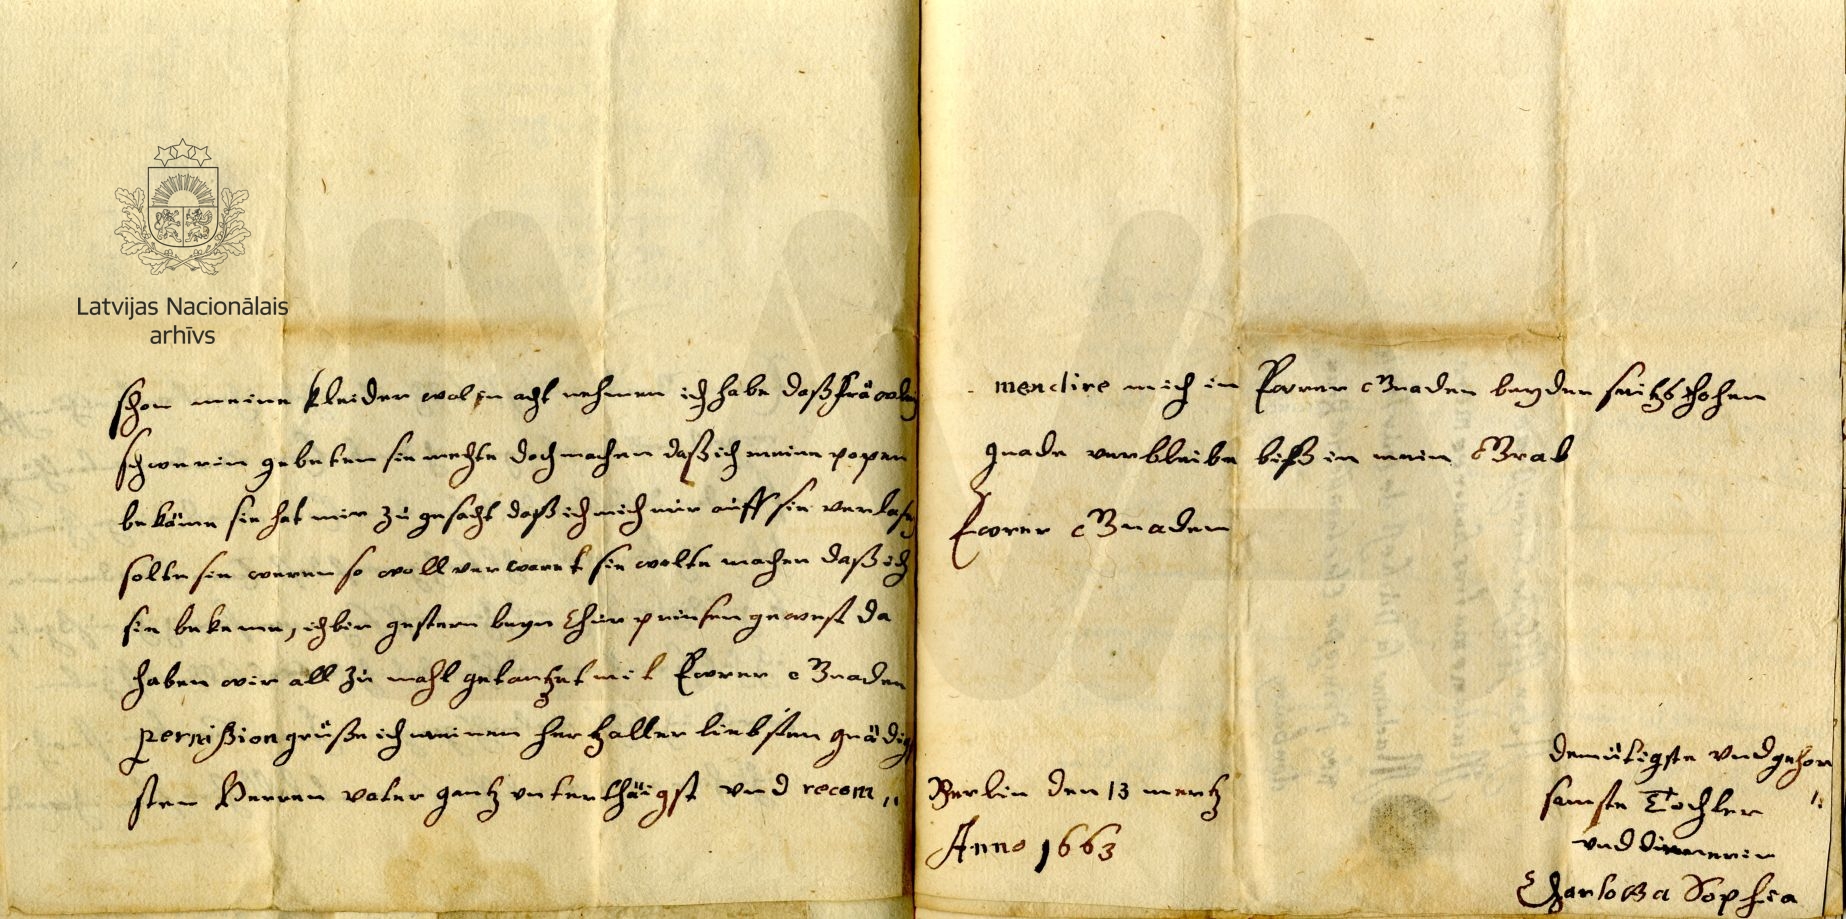 Latvijas Nacionālais
arhīvs
schon meine kleider wol in acht nehmen ich habe daß fräwlein
schwerin gebeten sie mechte doch machen daß ich meine popen
bekäme sie hat mir zu gesacht daß ich mich nur auff sie verlasen
solte sie weren so woll verwaret sie wolte machen daß ich
sie bekeme, ich bin gestern beyn Chur prinsen gewest da
haben wir all zu mahl getantzet mit Ewrer Gnaden
permißion grüße ich meinen hertzaller liebsten gnädig
sten Herren vater gantz unterthäigst und recom,,
mendire mich in Ewrer Gnaden beyder seitz hohen
gnade verbleibe biß in mein Grab
Ewrer Gnaden
Berlin den 13 mertz
Anno 1663
demütigste und gehor
samste Tochter
und dinnerin
Charlotta Sophia